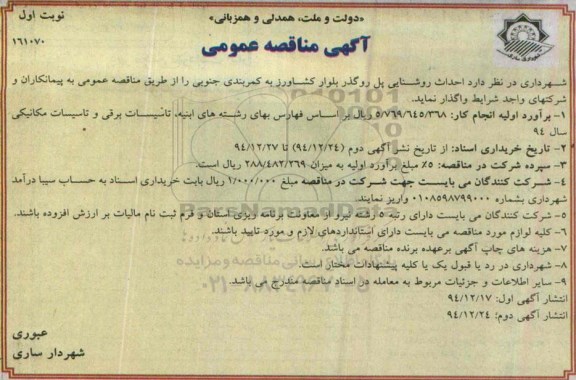 «دولت و ملت، همدلی و همزبانی»
نوبت اول
۱۶۱۰۷۰
آگهی مناقصه عمومی
شهرداری در نظر دارد احداث روشنایی پل روگذر بلوار کشاورز به کمربندی جنوبی را از طریق مناقصه عمومی به پیمانکاران و
شرکتهای واجد شرایط واگذار نماید.
۱- برآورد اولیه انجام کار: ۵/۷۶۹/۶۴۵/۳۶۸ ریال بر اساس فهارس بهای رشته های ابنیه، تاسیسات برقی و تاسیسات مکانیکی
سال ۹۴
۲- تاریخ خریداری اسناد: از تاریخ نشر آگهی دوم (۹۴/۱۲/۲۴) تا ۹۴/۱۲/۲۷
۳- سپرده شرکت در مناقصه: ۵٪ مبلغ برآورد اولیه به میزان ۲۸۸/۴۸۲/۲۶۹ ریال است.
۴- شرکت کنندگان می بایست جهت شرکت در مناقصه مبلغ ۱/۰۰۰/۰۰۰ ریال بابت خریداری اسناد به حساب سیبا درآمد
شهرداری بشماره ۰۱۰۸۵۹۸۷۹۹۰۰۰ واریز نمایند.
۵- شرکت کنندگان می بایست دارای رتبه ۵ رشته نیرو از معاونت برنامه ویزی استان و فرم ثبت نام مالیات بر ارزش افزوده باشند.
۶- کلیه لوازم مورد مناقصه می بایست دارای استانداردهای لازم و مورد تایید باشند.
۷- هزینه های چاپ آگهی برعهده برنده مناقصه می باشد.
۸- شهرداری در رد یا قبول یک یا کلیه پیشنهادات مختار است.
۹- سایر اطلاعات و جزئیات مربوط به معامله در اسناد مناقصه مندرج می باشد.
انتشار آگهی اول: ۹۴/۱۲/۱۷
انتشار آگهی دوم: ۹۴/۱۲/۲۴
عبوری
شهردار ساری